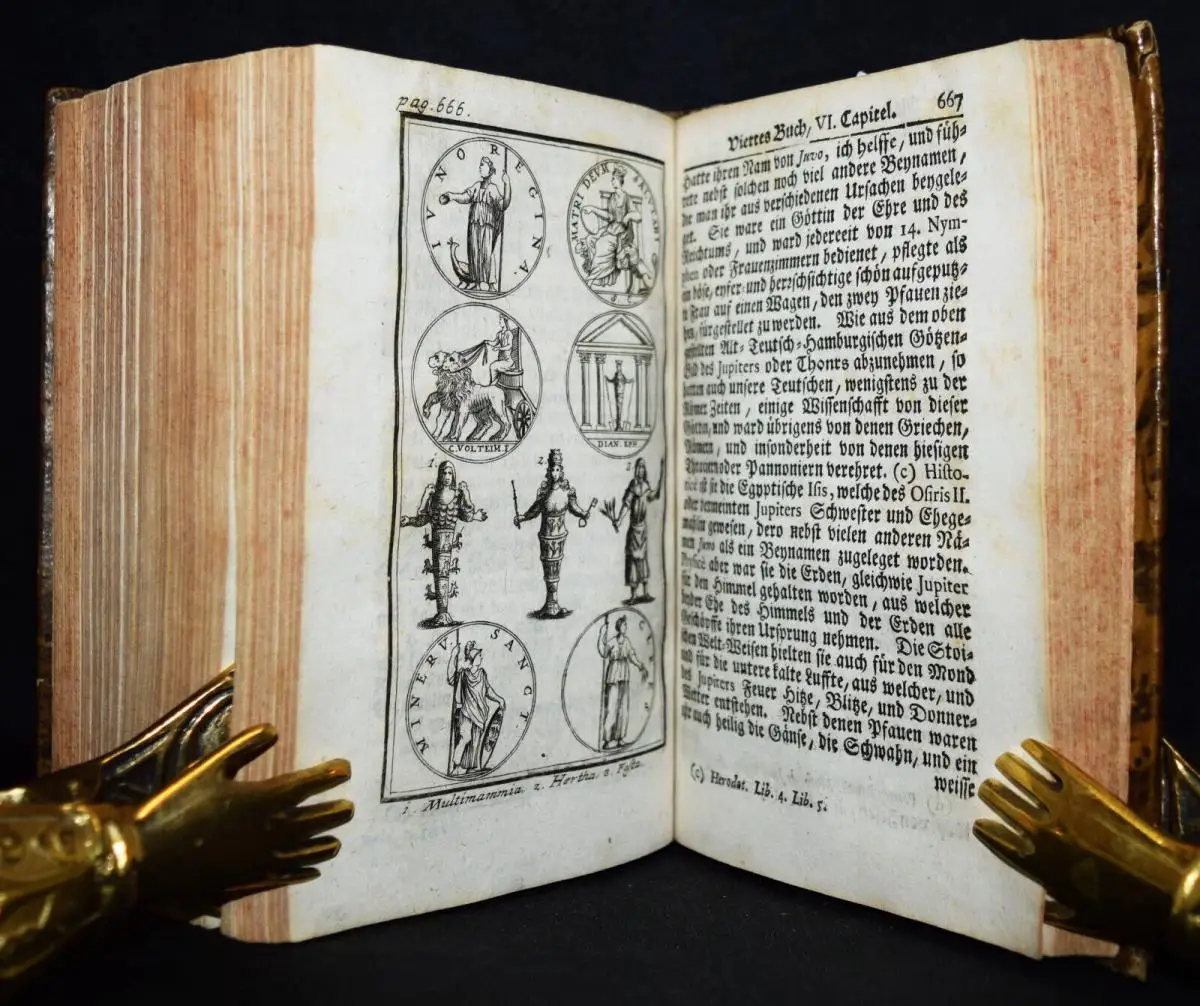 pag. 666.
IVNO REGINA.
MATRI DEVM SALVTARI
C. VOLTEI M. F
DIAN. EPH
1.
2.
MINERV. SANCT.
1. Multimammia. 2. Hertha.
667
Viertes Buch, VI. Capitel.
hatte ihren Nam von Juvo, ich helffe, und füh-
rete nebst solchen noch viel andere Beynamen,
die man ihr aus verschiedenen Ursachen beygele-
get. Sie ware ein Göttin der Ehre und des
Reichtums, und ward jederzeit von 14. Nym-
phen oder Frauenzimmern bedienet, pflegte als
ein böse, eyfer- und herrschsichtige schön aufgeputz-
te Frau auf einen Wagen, den zwey Pfauen zie-
hen, fürgestellet zu werden. Wie aus dem oben
Alt-Teutsch-Hamburgischen Götzen-
Bild des Jupiters oder Thonrs abzunehmen, so
hatten auch unsere Teutschen, wenigstens zu der
Römer Zeiten, einige Wissenschafft von dieser
Göttin, und ward übrigens von denen Griechen,
Römern, und insonderheit von denen hiesigen
Thracern oder Pannoniern verehret. (c) Histo-
rice ist sie die Egyptische Isis, welche des Osiris II.
oder vermeinten Jupiters Schwester und Ehege-
mahlin gewesen, dero nebst vielen anderen Nä-
men Juno als ein Beynamen zugeleget worden.
Physice aber war sie die Erden, gleichwie Jupiter
für den Himmel gehalten worden, aus welcher
beyder Ehe des Himmels und der Erden alle
Geschöpffe ihren Ursprung nehmen. Die Stoi-
schen Welt-Weisen hielten sie auch für den Mond
und für die untere kalte Luffte, aus welcher, und
des Jupiters Feuer Hitze, Blitze, und Donner-
Wetter entstehen. Nebst denen Pfauen waren
ihr auch heilig die Gänse, die Schwahn, und ein
weisse
(c) Herodot. Lib. 4. Lib. 5.